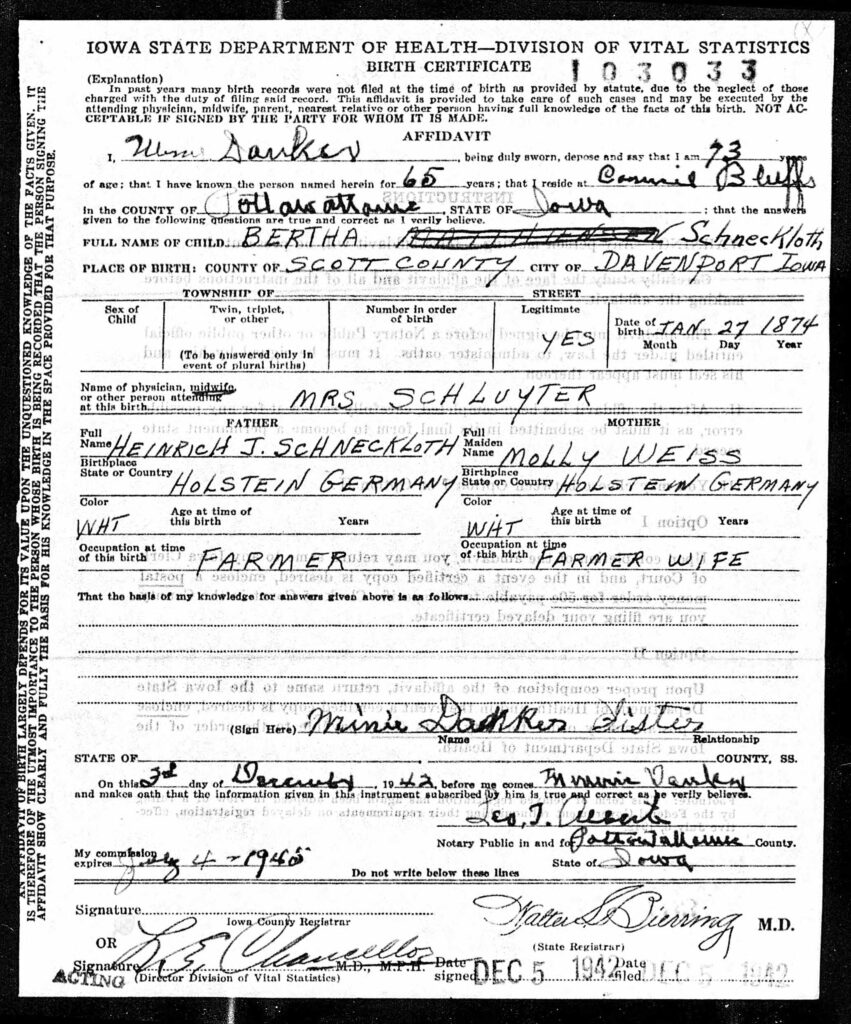 IOWA STATE DEPARTMENT OF HEALTH—DIVISION OF VITAL STATISTICS
BIRTH CERTIFICATE
103033
(Explanation)
In past years many birth records were not filed at the time of birth as provided by statute, due to the neglect of those
charged with the duty of filing said record. This affidavit is provided to take care of such cases and may be executed by the
attending physician, midwife, parent, nearest relative or other person having full knowledge of the facts of this birth. NOT AC-
CEPTABLE IF SIGNED BY THE PARTY FOR WHOM IT IS MADE.
AFFIDAVIT
I, Danker, being duly sworn, depose and say that I am 73 years
of age; that I have known the person named herein for 65 years; that I reside at Bluffs
in the COUNTY OF Pottawattamie, STATE OF Iowa; that the answers
given to the following questions are true and correct as I verily believe.
FULL NAME OF CHILD. BERTHA Schneckloth
PLACE OF BIRTH: COUNTY OF SCOTT COUNTY CITY OF DAVENPORT IOWA
TOWNSHIP OF STREET
Sex of Child
Twin, triplet, or other
(To be answered only in event of plural births)
Number in order of birth
Legitimate YES
Date of birth JAN 27 1874
Month Day Year
Name of physician, midwife,
or other person attending
at this birth. MRS SCHLUYTER
FATHER MOTHER
Full Name HEINRICH J. SCHNECKLOTH Full Maiden Name MOLLY WEISS
Birthplace State or Country HOLSTEIN GERMANY Birthplace State or Country HOLSTEIN GERMANY
Color WHT Age at time of this birth Years Color WHT Age at time of this birth Years
Occupation at time of this birth FARMER Occupation at time of this birth FARMER WIFE
That the basis of my knowledge for answers given above is as follows
(Sign Here) Minie Danker Sister
Name Relationship
STATE OF COUNTY, SS.
On this 3rd day of December, 1942, before me comes Minnie Danker
and makes oath that the information given in this instrument subscribed by him is true and correct as he verily believes.
Notary Public in and for Pottawattamie County.
My commission expires July 4 - 1945 State of Iowa
Do not write below these lines
Signature
Iowa County Registrar
Walter L. Bierring M.D.
(State Registrar)
OR
Signature L E Chancellor M.D., M.P.H.
ACTING (Director Division of Vital Statistics)
Date signed DEC 5 1942 Date filed DEC 5 1942
AN AFFIDAVIT OF BIRTH LARGELY DEPENDS FOR ITS VALUE UPON THE UNQUESTIONED KNOWLEDGE OF THE FACTS GIVEN. IT
IS THEREFORE OF THE UTMOST IMPORTANCE TO THE PERSON WHOSE BIRTH IS BEING RECORDED THAT THE PERSON SIGNING THE
AFFIDAVIT SHOW CLEARLY AND FULLY THE BASIS FOR HIS KNOWLEDGE IN THE SPACE PROVIDED FOR THAT PURPOSE.